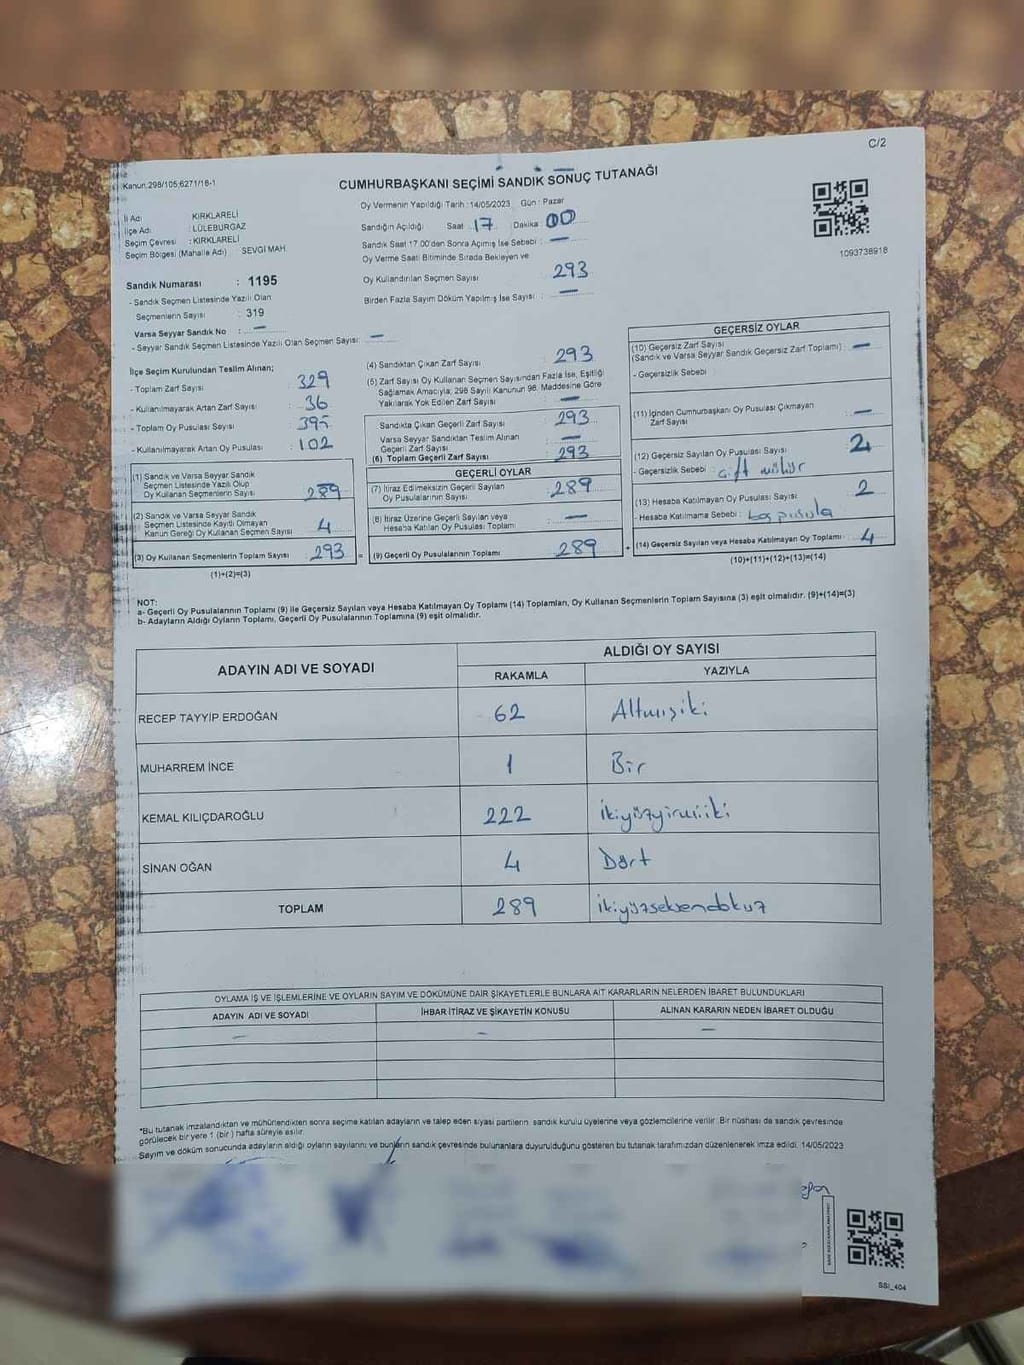 C/2
Kanun:298/105;6271/18-1
CUMHURBAŞKANI SEÇİMİ SANDIK SONUÇ TUTANAĞI
İl Adı : KIRKLARELİ
İlçe Adı : LÜLEBURGAZ
Seçim Çevresi : KIRKLARELİ
Seçim Bölgesi (Mahalle Adı) SEVGİ MAH.
Sandık Numarası : 1195
- Sandık Seçmen Listesinde Yazılı Olan
Seçmenlerin Sayısı : 319
Varsa Seyyar Sandık No : —
- Seyyar Sandık Seçmen Listesinde Yazılı Olan Seçmen Sayısı: —
Oy Vermenin Yapıldığı Tarih :14/05/2023 Gün : Pazar
Sandığın Açıldığı Saat : 17 Dakika : 00
Sandık Saat 17.00'den Sonra Açımış İse Sebebi : —
Oy Verme Saati Bitiminde Sırada Bekleyen ve
Oy Kullandırılan Seçmen Sayısı : 293
Birden Fazla Sayım Döküm Yapılmış İse Sayısı : —
1093738918
İlçe Seçim Kurulundan Teslim Alınan;
- Toplam Zarf Sayısı : 329
- Kullanılmayarak Artan Zarf Sayısı : 36
- Toplam Oy Pusulası Sayısı : 395
- Kullanılmayarak Artan Oy Pusulası : 102
(1) Sandık ve Varsa Seyyar Sandık
Seçmen Listesinde Yazılı Olup
Oy Kullanan Seçmenlerin Sayısı : 289
(2) Sandık ve Varsa Seyyar Sandık
Seçmen Listesinde Kayıtlı Olmayan
Kanun Gereği Oy Kullanan Seçmen Sayısı : 4
(3) Oy Kullanan Seçmenlerin Toplam Sayısı : 293 =
(1)+(2)=(3)
(4) Sandıktan Çıkan Zarf Sayısı : 293
(5) Zarf Sayısı Oy Kullanan Seçmen Sayısından Fazla İse, Eşitliği
Sağlamak Amacıyla; 298 Sayılı Kanunun 98. Maddesine Göre
Yakılarak Yok Edilen Zarf Sayısı : —
Sandıkta Çıkan Geçerli Zarf Sayısı : 293
Varsa Seyyar Sandıktan Teslim Alınan
Geçerli Zarf Sayısı : —
(6) Toplam Geçerli Zarf Sayısı : 293
GEÇERLİ OYLAR
(7) İtiraz Edilmeksizin Geçerli Sayılan
Oy Pusulalarının Sayısı : 289
(8) İtiraz Üzerine Geçerli Sayılan veya
Hesaba Katılan Oy Pusulası Toplamı : —
(9) Geçerli Oy Pusulalarının Toplamı : 289 +
GEÇERSİZ OYLAR
(10) Geçersiz Zarf Sayısı
(Sandık ve Varsa Seyyar Sandık Geçersiz Zarf Toplamı) : —
- Geçersizlik Sebebi :
(11) İçinden Cumhurbaşkanı Oy Pusulası Çıkmayan
Zarf Sayısı : —
(12) Geçersiz Sayılan Oy Pusulası Sayısı : 2
- Geçersizlik Sebebi : çift mühür
(13) Hesaba Katılmayan Oy Pusulası Sayısı : 2
- Hesaba Katılmama Sebebi : boş pusula
(14) Geçersiz Sayılan veya Hesaba Katılmayan Oy Toplamı : 4
(10)+(11)+(12)+(13)=(14)
NOT:
a- Geçerli Oy Pusulalarının Toplamı (9) ile Geçersiz Sayılan veya Hesaba Katılmayan Oy Toplamı (14) Toplamları, Oy Kullanan Seçmenlerin Toplam Sayısına (3) eşit olmalıdır. (9)+(14)=(3)
b- Adayların Aldığı Oyların Toplamı, Geçerli Oy Pusulalarının Toplamına (9) eşit olmalıdır.
ADAYIN ADI VE SOYADI ALDIĞI OY SAYISI
RAKAMLA YAZIYLA
RECEP TAYYİP ERDOĞAN 62 Altmışiki
MUHARREM İNCE 1 Bir
KEMAL KILIÇDAROĞLU 222 ikiyüzyirmiiki
SİNAN OĞAN 4 Dört
TOPLAM 289 ikiyüzseksendokuz
OYLAMA İŞ VE İŞLEMLERİNE VE OYLARIN SAYIM VE DÖKÜMÜNE DAİR ŞİKAYETLERLE BUNLARA AİT KARARLARIN NELERDEN İBARET BULUNDUKLARI
ADAYIN ADI VE SOYADI İHBAR İTİRAZ VE ŞİKAYETİN KONUSU ALINAN KARARIN NEDEN İBARET OLDUĞU
— — —
*Bu tutanak imzalandıktan ve mühürlendikten sonra seçime katılan adayların ve talep eden siyasi partilerin sandık kurulu üyelerine veya gözlemcilerine verilir. Bir nüshası de sandık çevresinde
görülecek bir yere 1 (bir) hafta süreyle asılır.
Sayım ve döküm sonucunda adayların aldığı oyların sayılarını ve bunların sandık çevresinde bulunanlara duyurulduğunu gösteren bu tutanak tarafımızdan düzenlenerek imza edildi. 14/05/2023
SSI_404